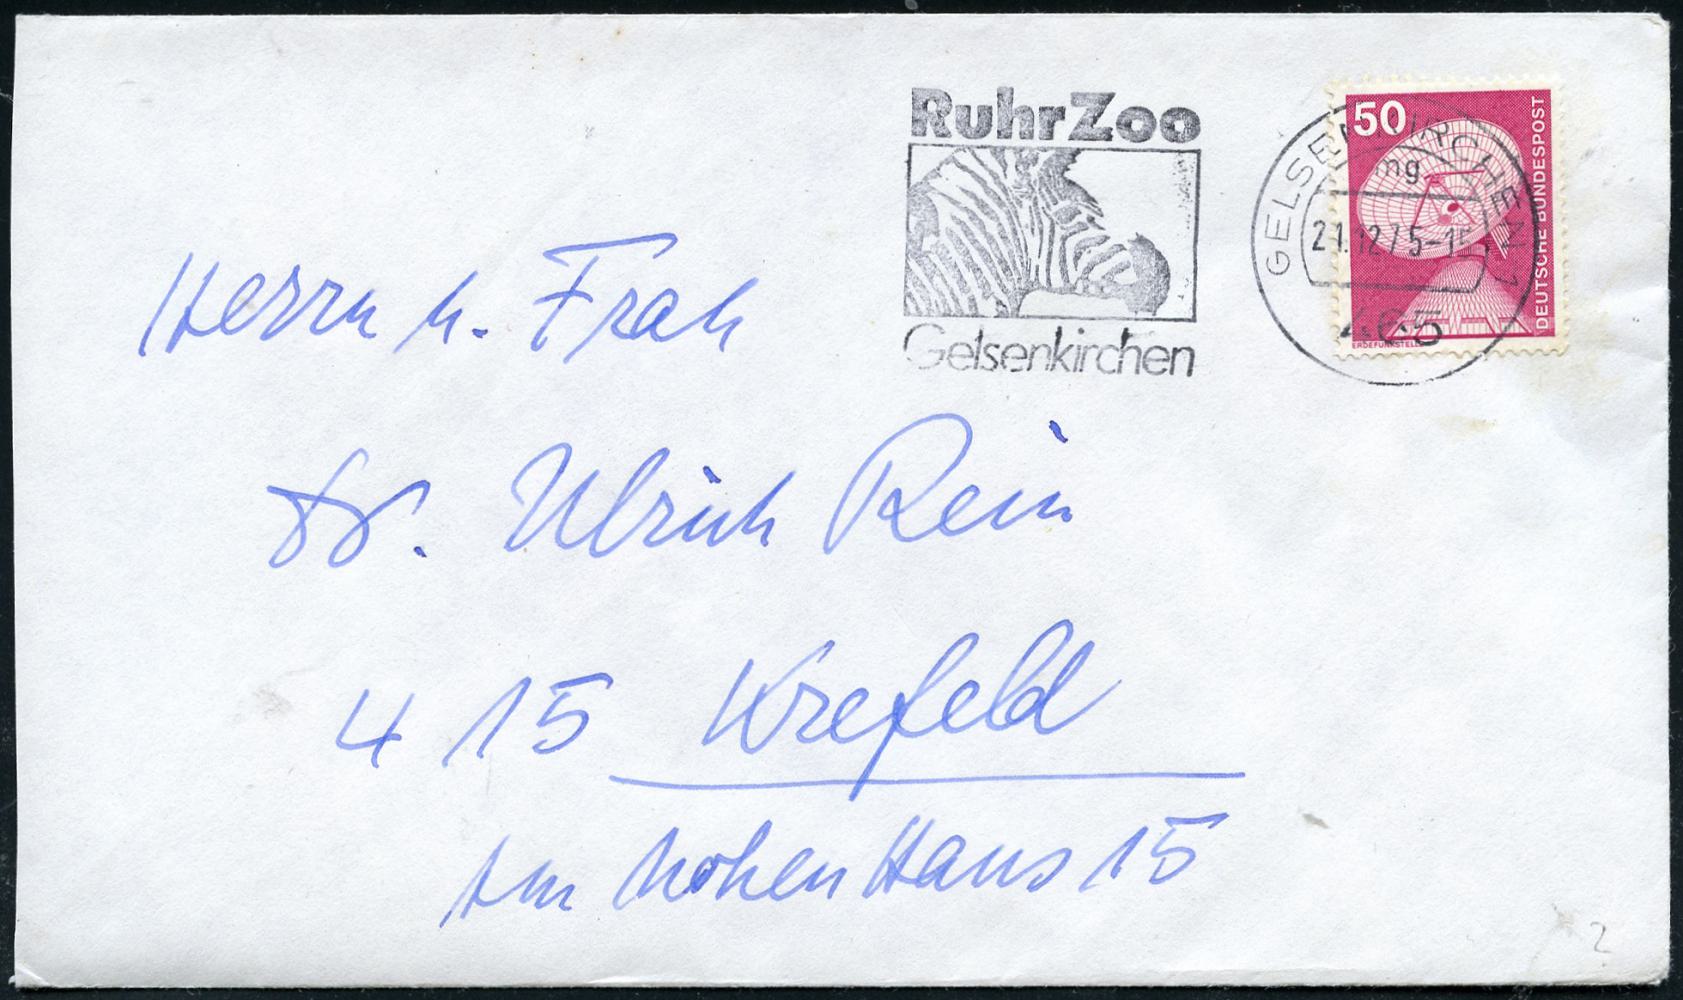 Ruhr Zoo
Gelsenkirchen
GELSENKIRCHEN 1
mg
21.12.75-15
465
50
DEUTSCHE BUNDESPOST
ERDEFUNKSTELLE
Herrn u. Frau
Dr. Ulrich Rein
415 Krefeld
Am hohen Haus 15
2